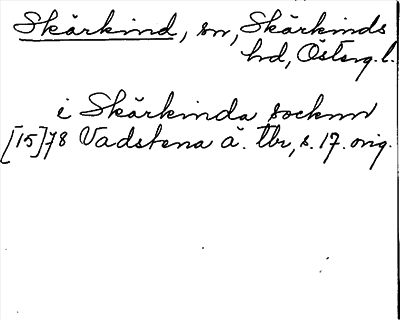 Skärkind, sn, Skärkinds
hd, Österg. l.
i Skärkinda socknn
[15]78 Vadstena å. Tbr, s. 17. orig.